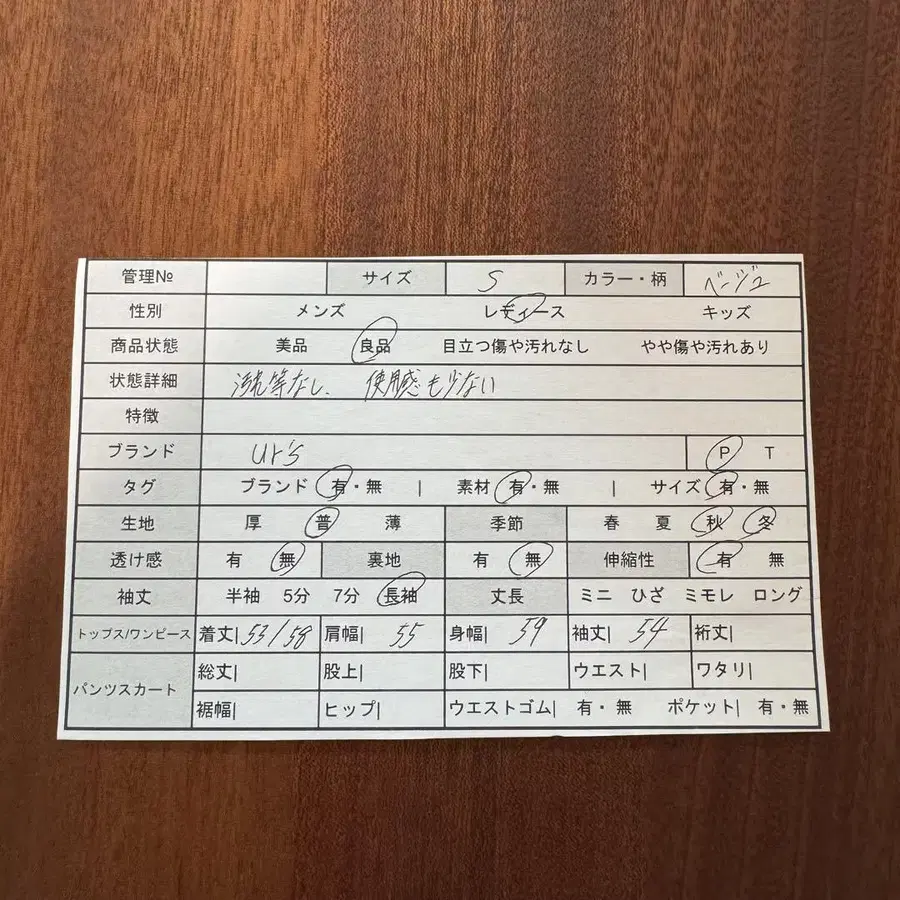 管理№ サイズ S カラー・柄 ベージュ
性別 メンズ レディース キッズ
商品状態 美品 良品 目立つ傷や汚れなし やや傷や汚れあり
状態詳細 汚れ等なし、使用感も少ない
特徴
ブランド ur's P T
タグ ブランド 有・無 | 素材 有・無 | サイズ 有・無
生地 厚 普 薄 季節 春 夏 秋 冬
透け感 有 無 裏地 有 無 伸縮性 有 無
袖丈 半袖 5分 7分 長袖 丈長 ミニ ひざ ミモレ ロング
トップス/ワンピース 着丈| 53/58 肩幅| 55 身幅| 59 袖丈| 54 裄丈|
パンツスカート 総丈| 股上| 股下| ウエスト| ワタリ|
裾幅| ヒップ| ウエストゴム| 有・無 ポケット| 有・無